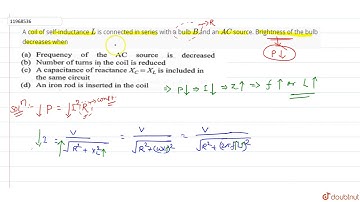 11968536
A coil of self-inductance L is connected in series with a bulb B and an AC source. Brightness of the bulb
decreases when
(a) Frequency of the AC source is decreased
(b) Number of turns in the coil is reduced
(c) A capacitance of reactance X_C = X_L is included in
the same circuit
(d) An iron rod is inserted in the coil
→ R
P↓
⇒ P↓ → I↓ → Z↑ ⇒ f↑ or L↑
Solⁿ:- ↓P = ↓I² R → const.
↓I = V / √(R² + X_L²) = V / √(R² + (ωL)²) = V / √(R² + (2πfL)²)
doubtnut